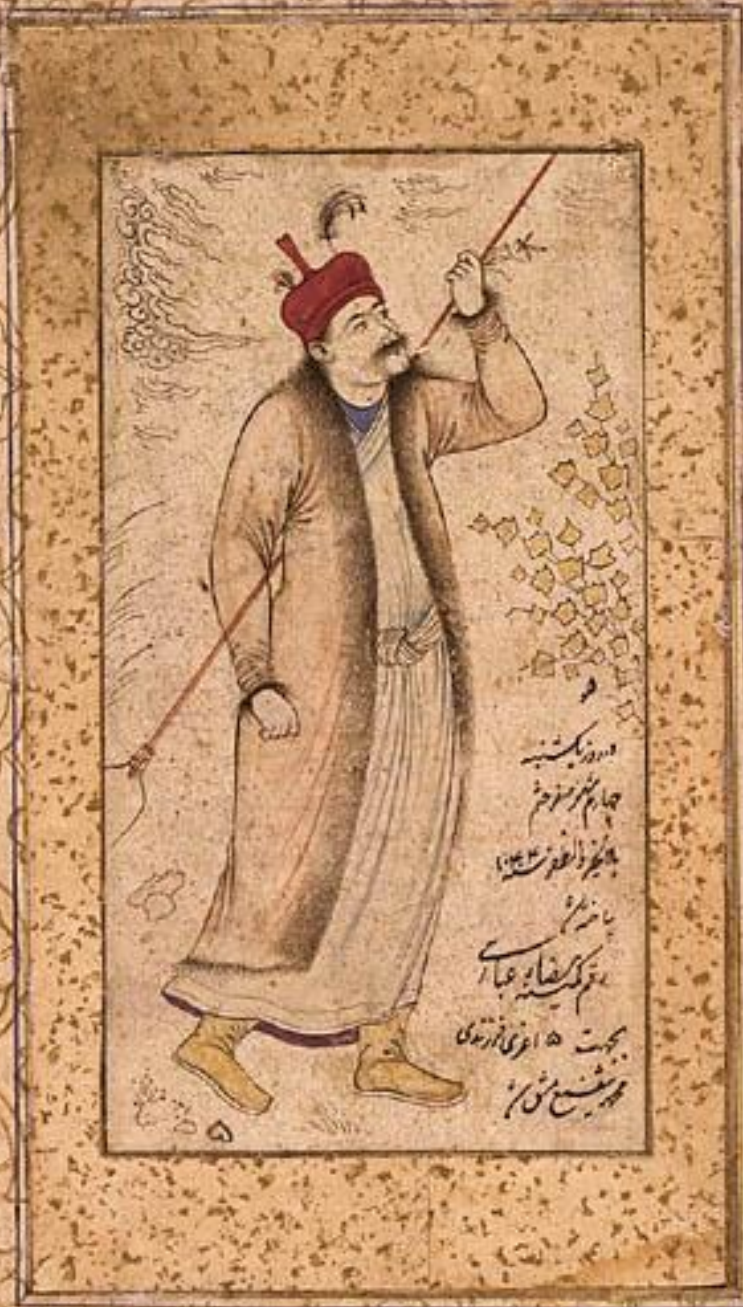 هو
در روز یکشنبه
چهارم شهر صفر ختم
بالخیر والظفر سنه ۱۰۴۴
باتمام
رقم کمینه رضاء عباسی
بجهت اعزی فرزندی
محمد شفیع مشق شد